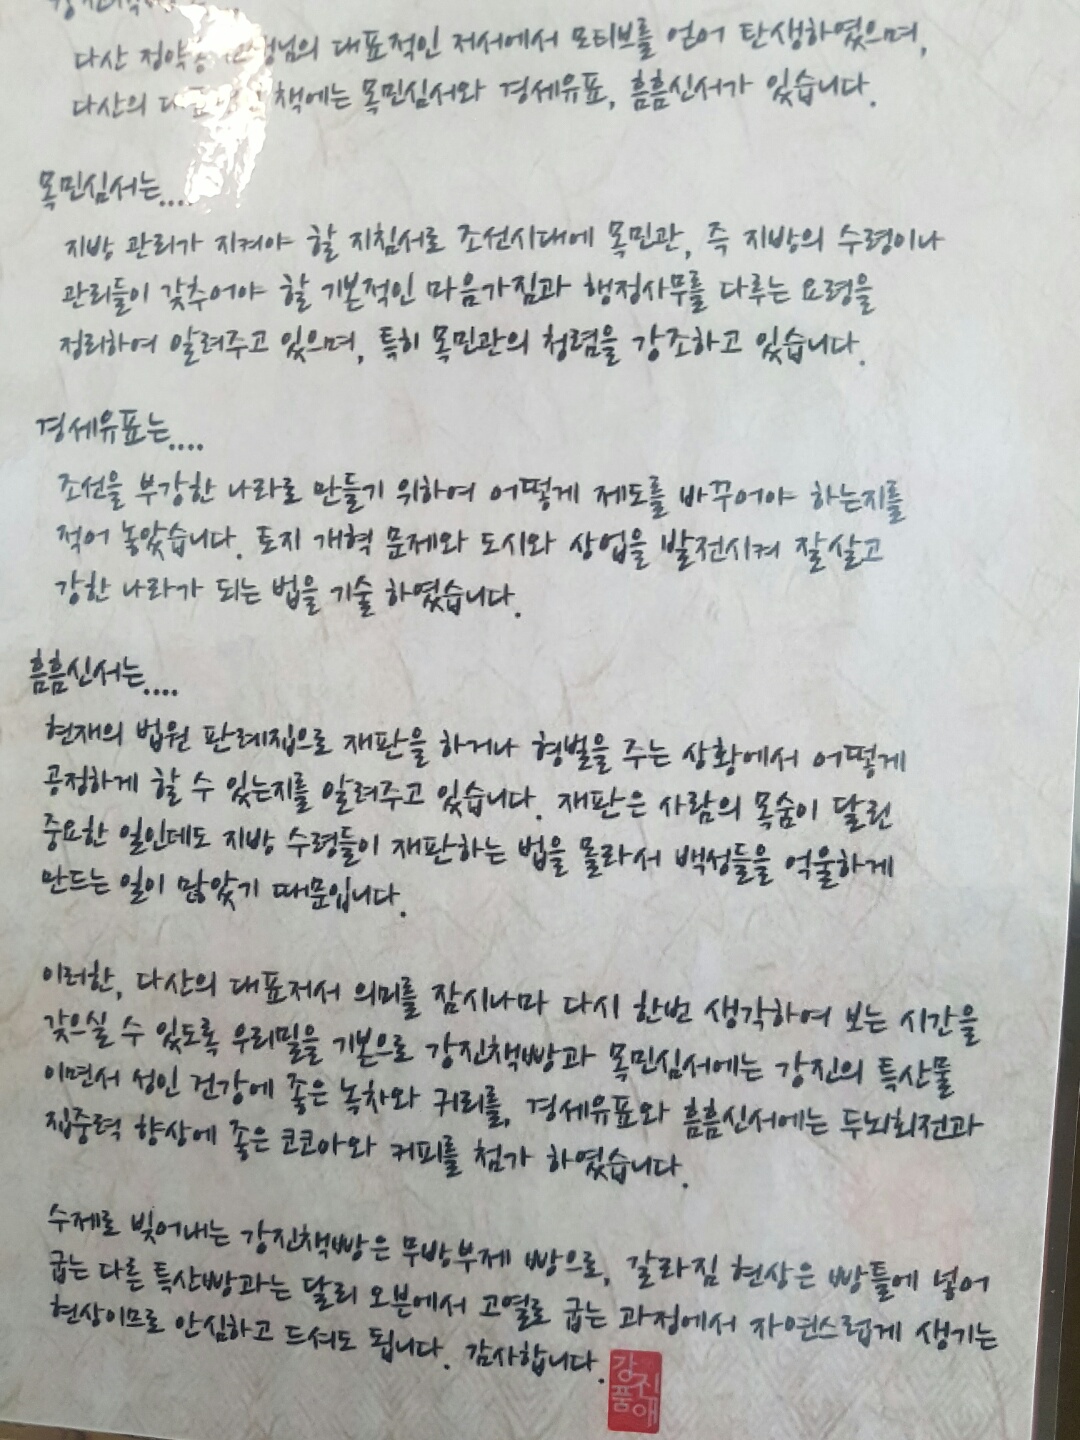 다산 정약용 선생님의 대표적인 저서에서 모티브를 얻어 탄생하였으며,
다산의 대표적인 책에는 목민심서와 경세유표, 흠흠신서가 있습니다.
목민심서는....
지방 관리가 지켜야 할 지침서로 조선시대에 목민관, 즉 지방의 수령이나
관리들이 갖추어야 할 기본적인 마음가짐과 행정사무를 다루는 요령을
정리하여 알려주고 있으며, 특히 목민관의 청렴을 강조하고 있습니다.
경세유표는....
조선을 부강한 나라로 만들기 위하여 어떻게 제도를 바꾸어야 하는지를
적어 놓았습니다. 토지 개혁 문제와 도시와 상업을 발전시켜 잘살고
강한 나라가 되는 법을 기술 하였습니다.
흠흠신서는....
현재의 법원 판례집으로 재판을 하거나 형벌을 주는 상황에서 어떻게
공정하게 할 수 있는지를 알려주고 있습니다. 재판은 사람의 목숨이 달린
중요한 일인데도 지방 수령들이 재판하는 법을 몰라서 백성들을 억울하게
만드는 일이 많았기 때문입니다.
이러한, 다산의 대표저서 의미를 잠시나마 다시 한번 생각하여 보는 시간을
갖으실 수 있도록 우리밀을 기본으로 강진책빵과 목민심서에는 강진의 특산물
이면서 성인 건강에 좋은 녹차와 귀리를, 경세유표와 흠흠신서에는 두뇌회전과
집중력 향상에 좋은 코코아와 커피를 첨가 하였습니다.
수제로 빚어내는 강진책빵은 무방부제 빵으로, 갈라짐 현상은 빵틀에 넣어
굽는 다른 특산빵과는 달리 오븐에서 고열로 굽는 과정에서 자연스럽게 생기는
현상이므로 안심하고 드셔도 됩니다. 감사합니다.
강진
품애